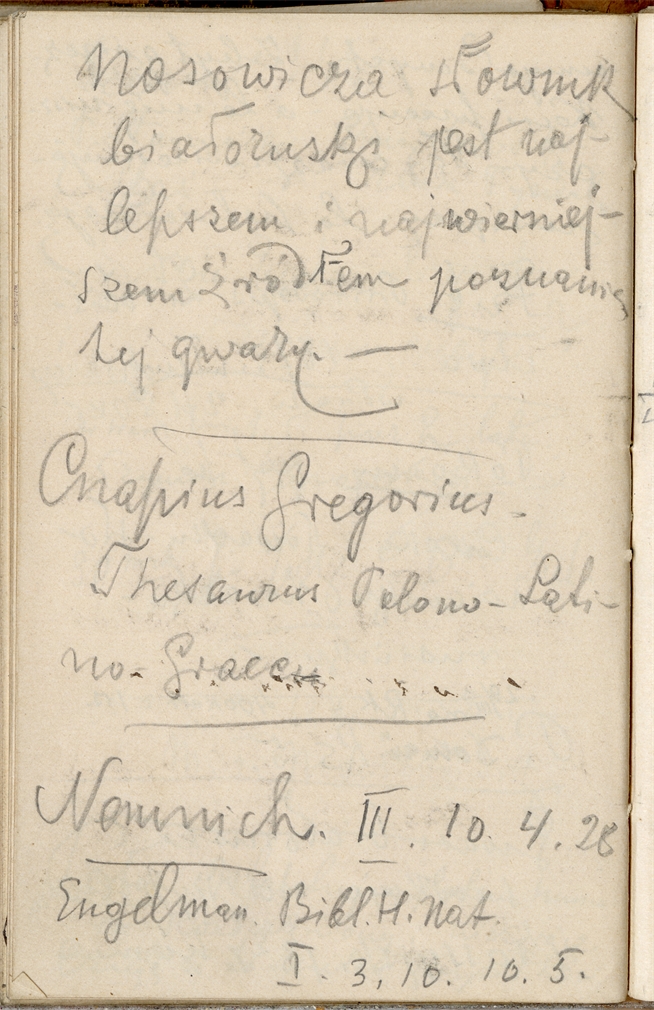 Nosowicza słownik
białoruski jest naj-
lepszem i najwierniej-
szem źródłem poznania
tej gwary. —
Cnapius Gregorius.
Thesaurus Polono-Lati-
no-Graecu
Nemnich. III. 10. 4. 28
Engelman. Bibl. H. Nat.
I. 3. 10. 10. 5.